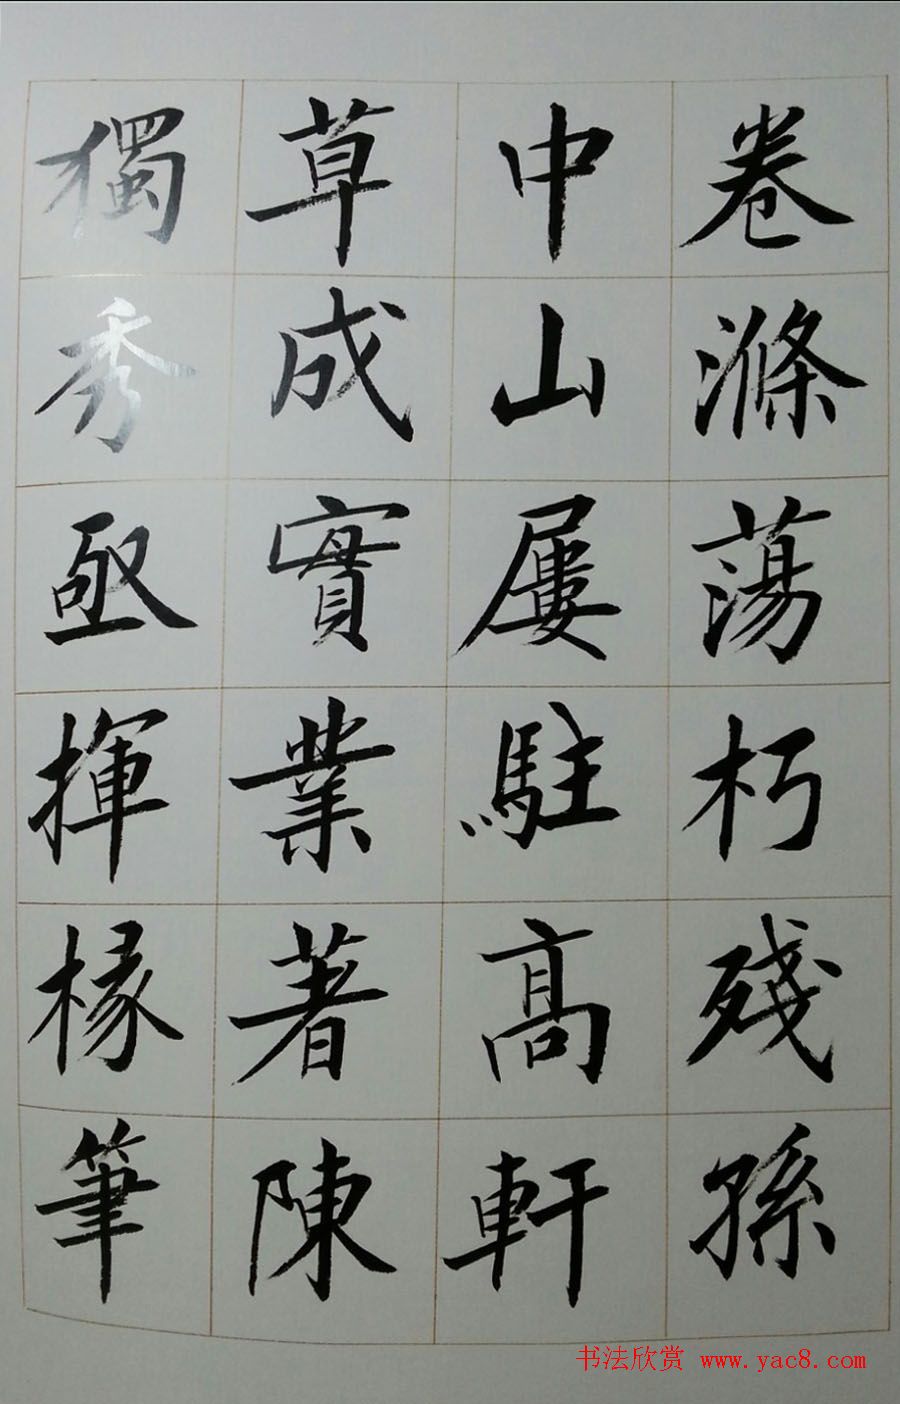 卷滌蕩朽殘孫
中山屢駐高軒
草成實業著陳
獨秀亟揮椽筆
书法欣赏 www.yac8.com